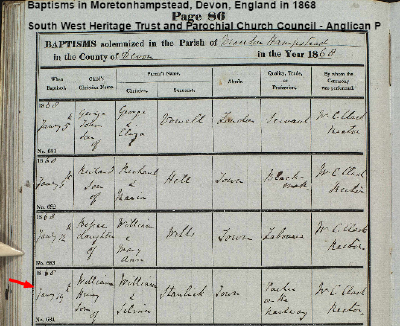 Baptisms in Moretonhampstead, Devon, England in 1868
Page 86
South West Heritage Trust and Parochial Church Council - Anglican P
BAPTISMS solemnized in the Parish of Moreton Hampstead
in the County of Devon in the Year 1868
When Baptized. Child's Christian Name. Parent's Name. Abode. Quality, Trade, or Profession. By whom the Ceremony was performed.
Christian. Surname.
1868
Jany 5th George John Son of George & Eliza London Servant Wm C Clack Rector
No. 681
1868
Jany Richard Son of Richard & Town Wm C Clack Rector
No. 682
1868
Jany 12th daughter of William & Mary Ann Wills Town Labourer Wm C Clack Rector
No. 683
1868
Jany 19th William Henry Son of William & Selina Town Packer on the Railway Wm C Clack Rector
No. 684